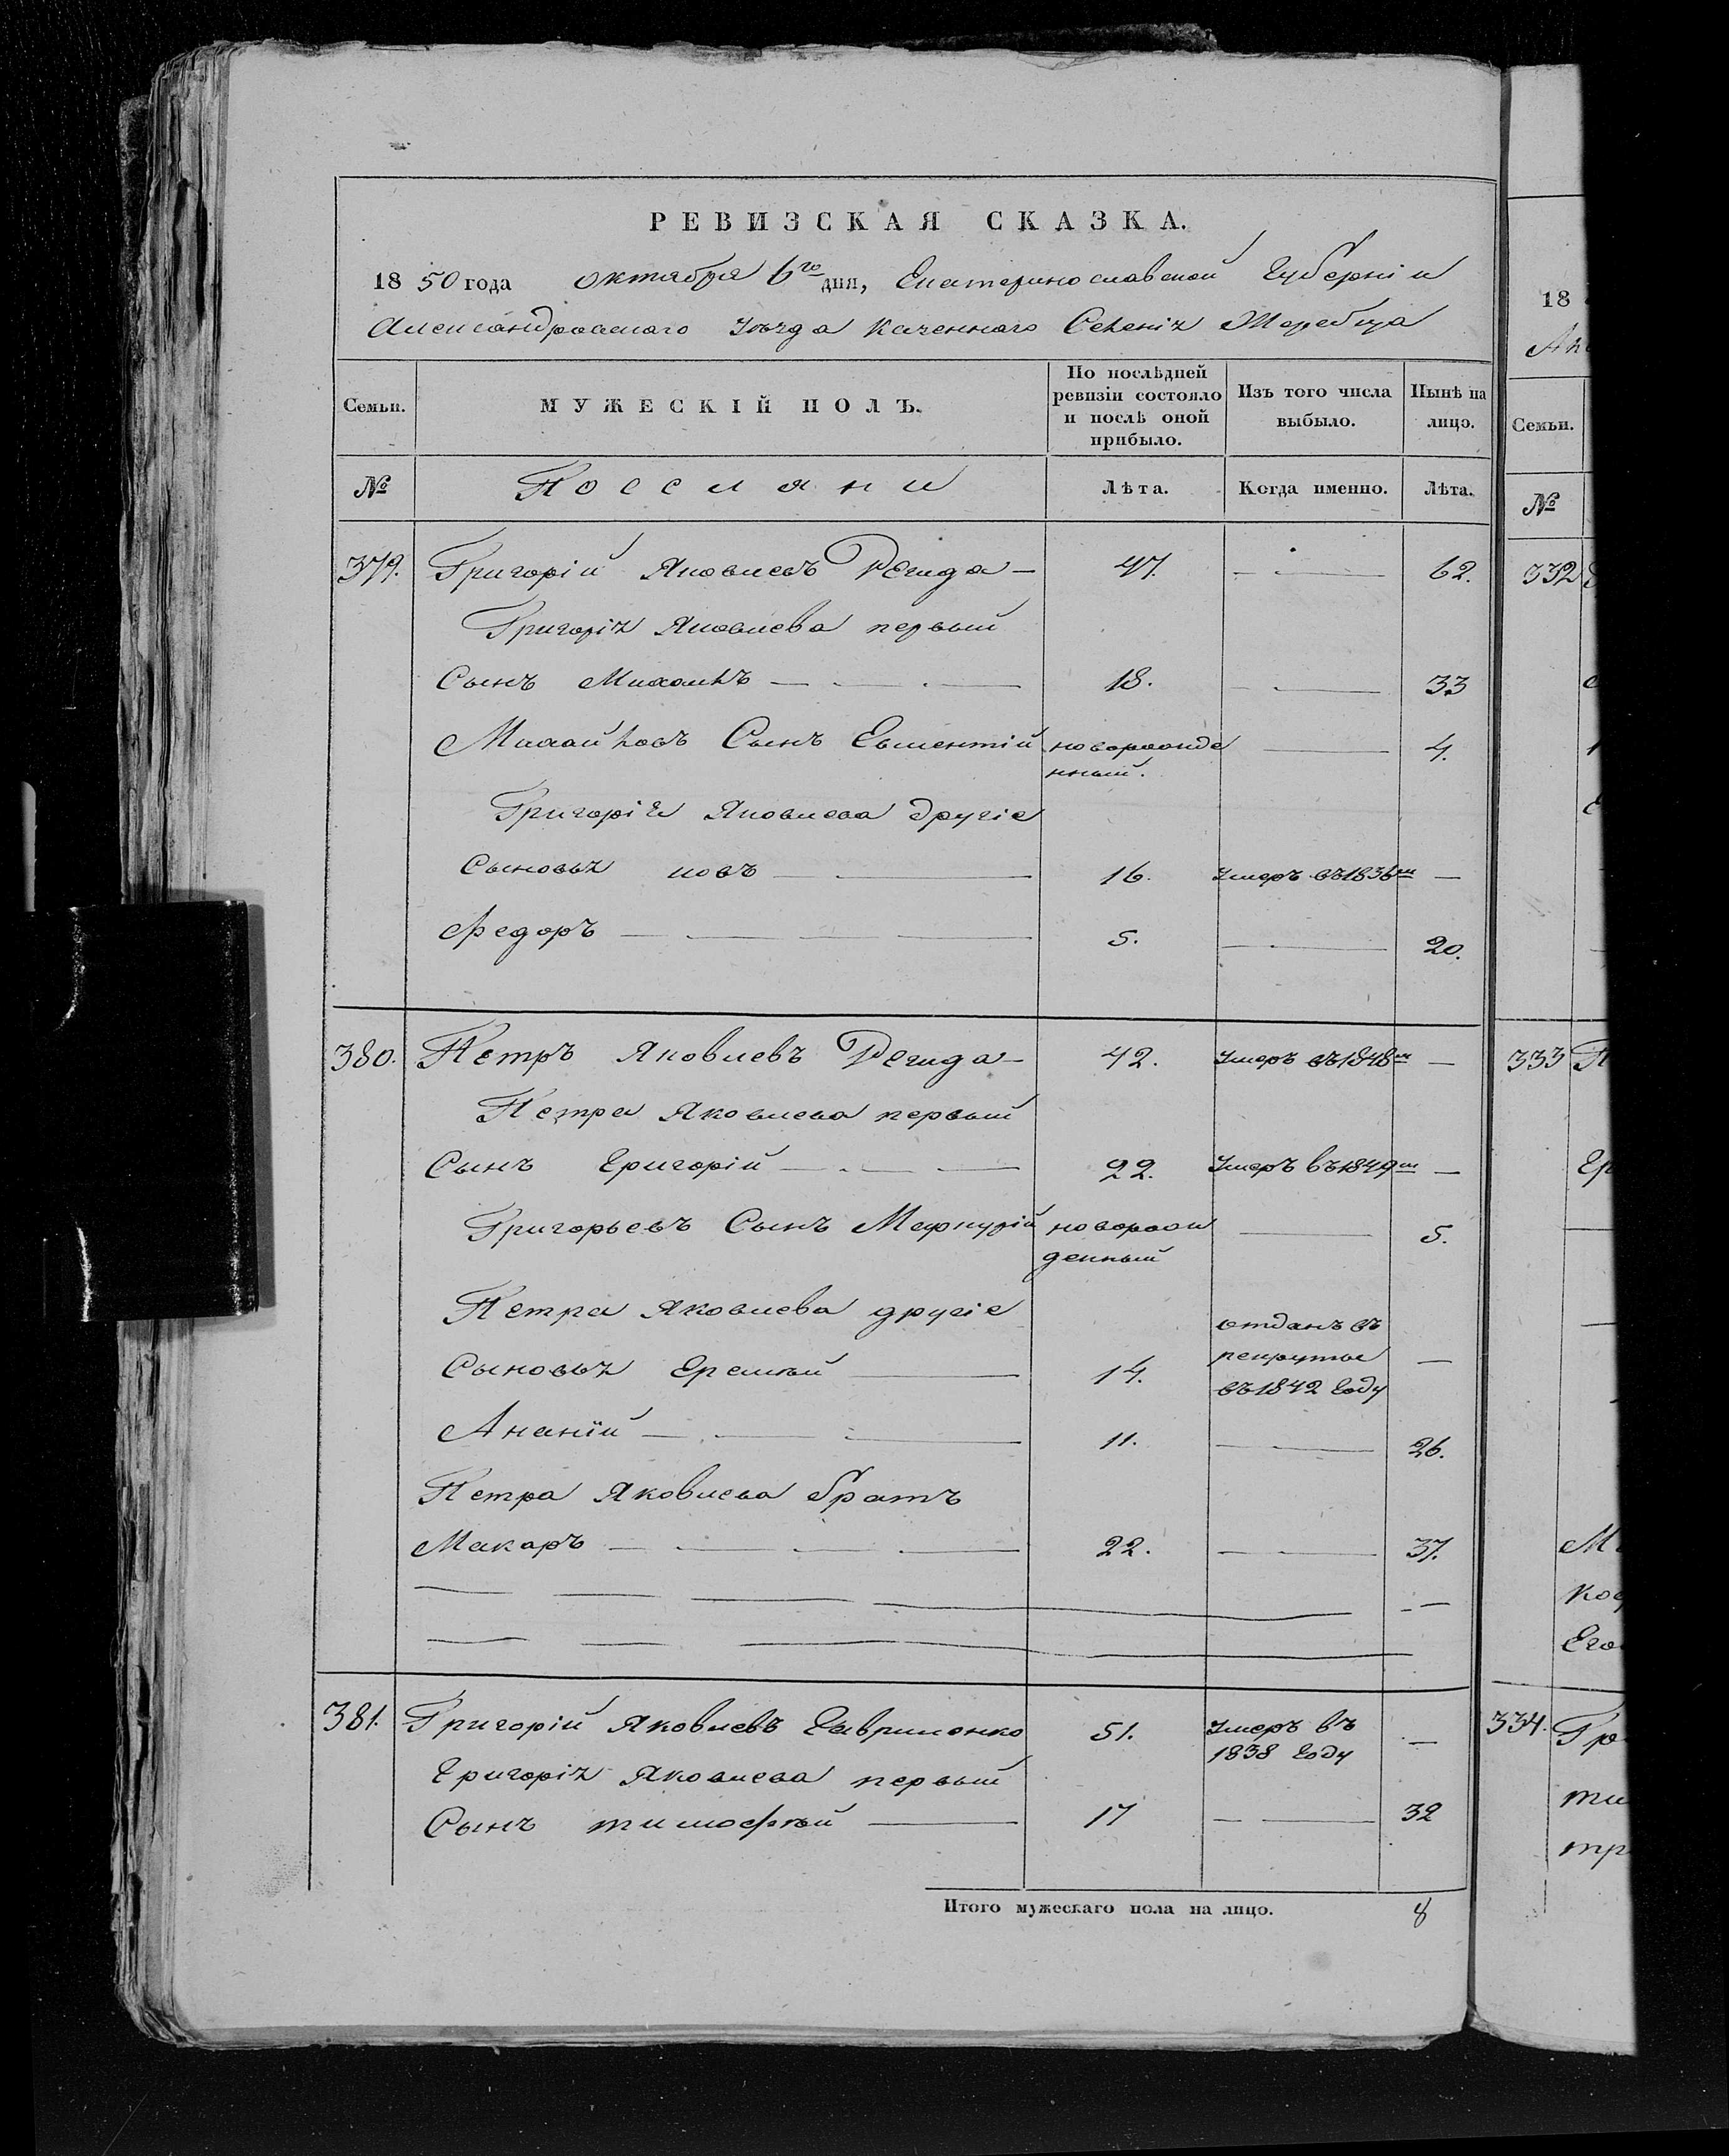 РЕВИЗСКАЯ СКАЗКА.
1850 года октября 6го дня, Екатеринославской Губерніи
Александровскаго Уѣзда Казеннаго Селенія Жеребца
Семьи. МУЖЕСКІЙ ПОЛЪ. По послѣдней ревизіи состояло и послѣ оной прибыло. Изъ того числа выбыло. Нынѣ на лицо.
№ Поселяни Лѣта. Когда именно. Лѣта.
379. Григорій Яковлевъ 47. 62.
Григорія Яковлева первый
Сынъ Михаилъ 18. 33
Михайловъ Сынъ новорожде нный. 4.
Григорія Яковлева другіе
Сыновья Іовъ 16. Умеръ въ 1836м —
Федоръ 5. 20.
380. Петръ Яковлевъ 42. Умеръ въ 1848м —
Петра Яковлева первый
Сынъ Григорій 22. Умеръ въ 1849м —
Григорьевъ Сынъ Меркурій новорож денный 5.
Петра Яковлева другіе
Сыновья Еремѣй 14. отданъ въ рекруты въ 1842 году —
Ананій 11. 26.
Петра Яковлева братъ
Макаръ 22. 37.
381. Григорій Яковлевъ Гавриленко 51. Умеръ въ 1838 году —
Григорія Яковлева первый
Сынъ тимофѣй 17 32
Итого мужескаго пола на лицо. 8
18
Семьи.
№
332
333
334.